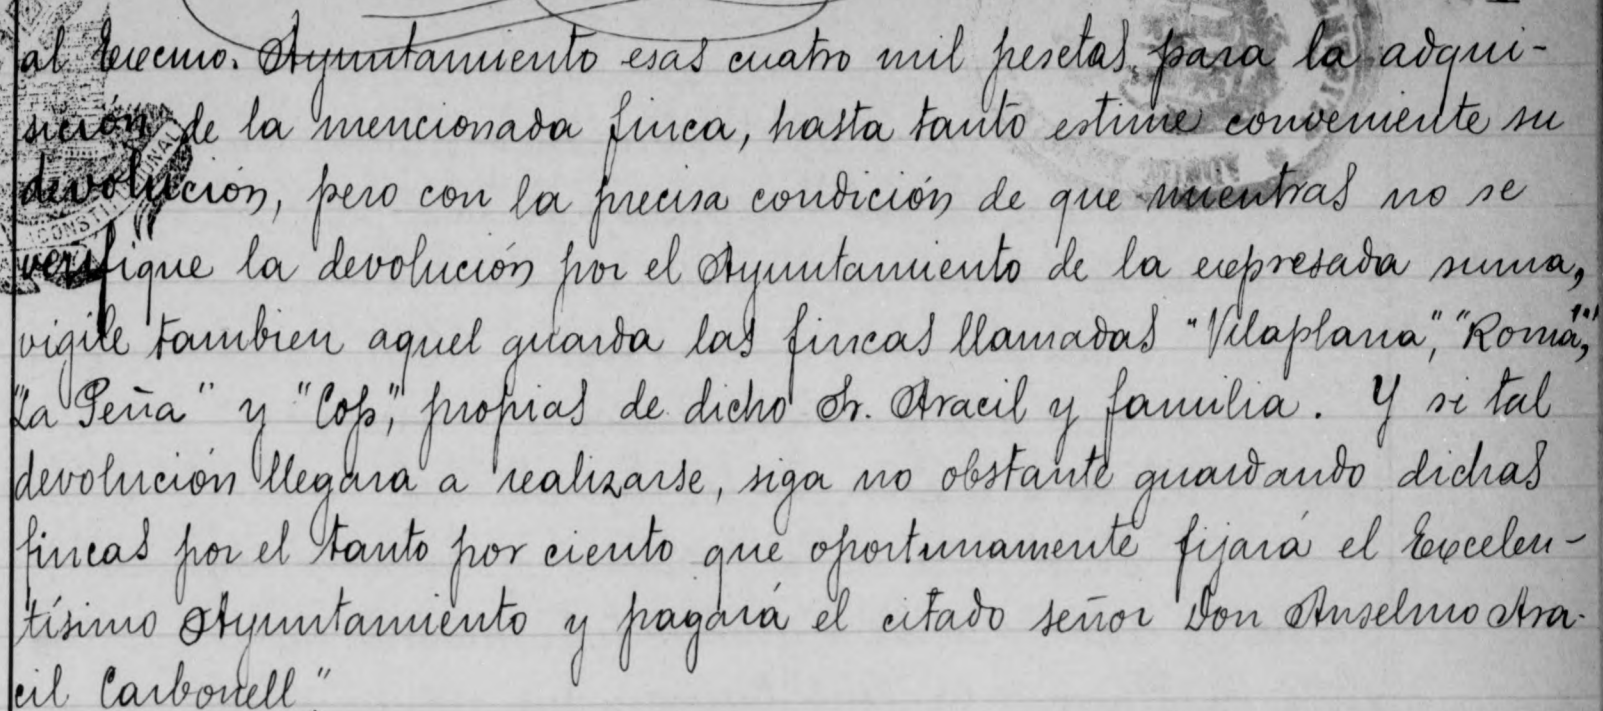 al Excmo. Ayuntamiento esas cuatro mil pesetas, para la adqui-
sición de la mencionada finca, hasta tanto estime conveniente su
devolución, pero con la precisa condición de que mientras no se
verifique la devolución por el Ayuntamiento de la expresada suma,
vigile tambien aquel guarda las fincas llamadas "Vilaplana", "Romá",
"La Peña" y "Cop", propias de dicho Sr. Aracil y familia. Y si tal
devolución llegara a realizarse, siga no obstante guardando dichas
fincas por el tanto por ciento que oportunamente fijará el Excelen-
tísimo Ayuntamiento y pagará el citado señor Don Anselmo Ara-
cil Carbonell".